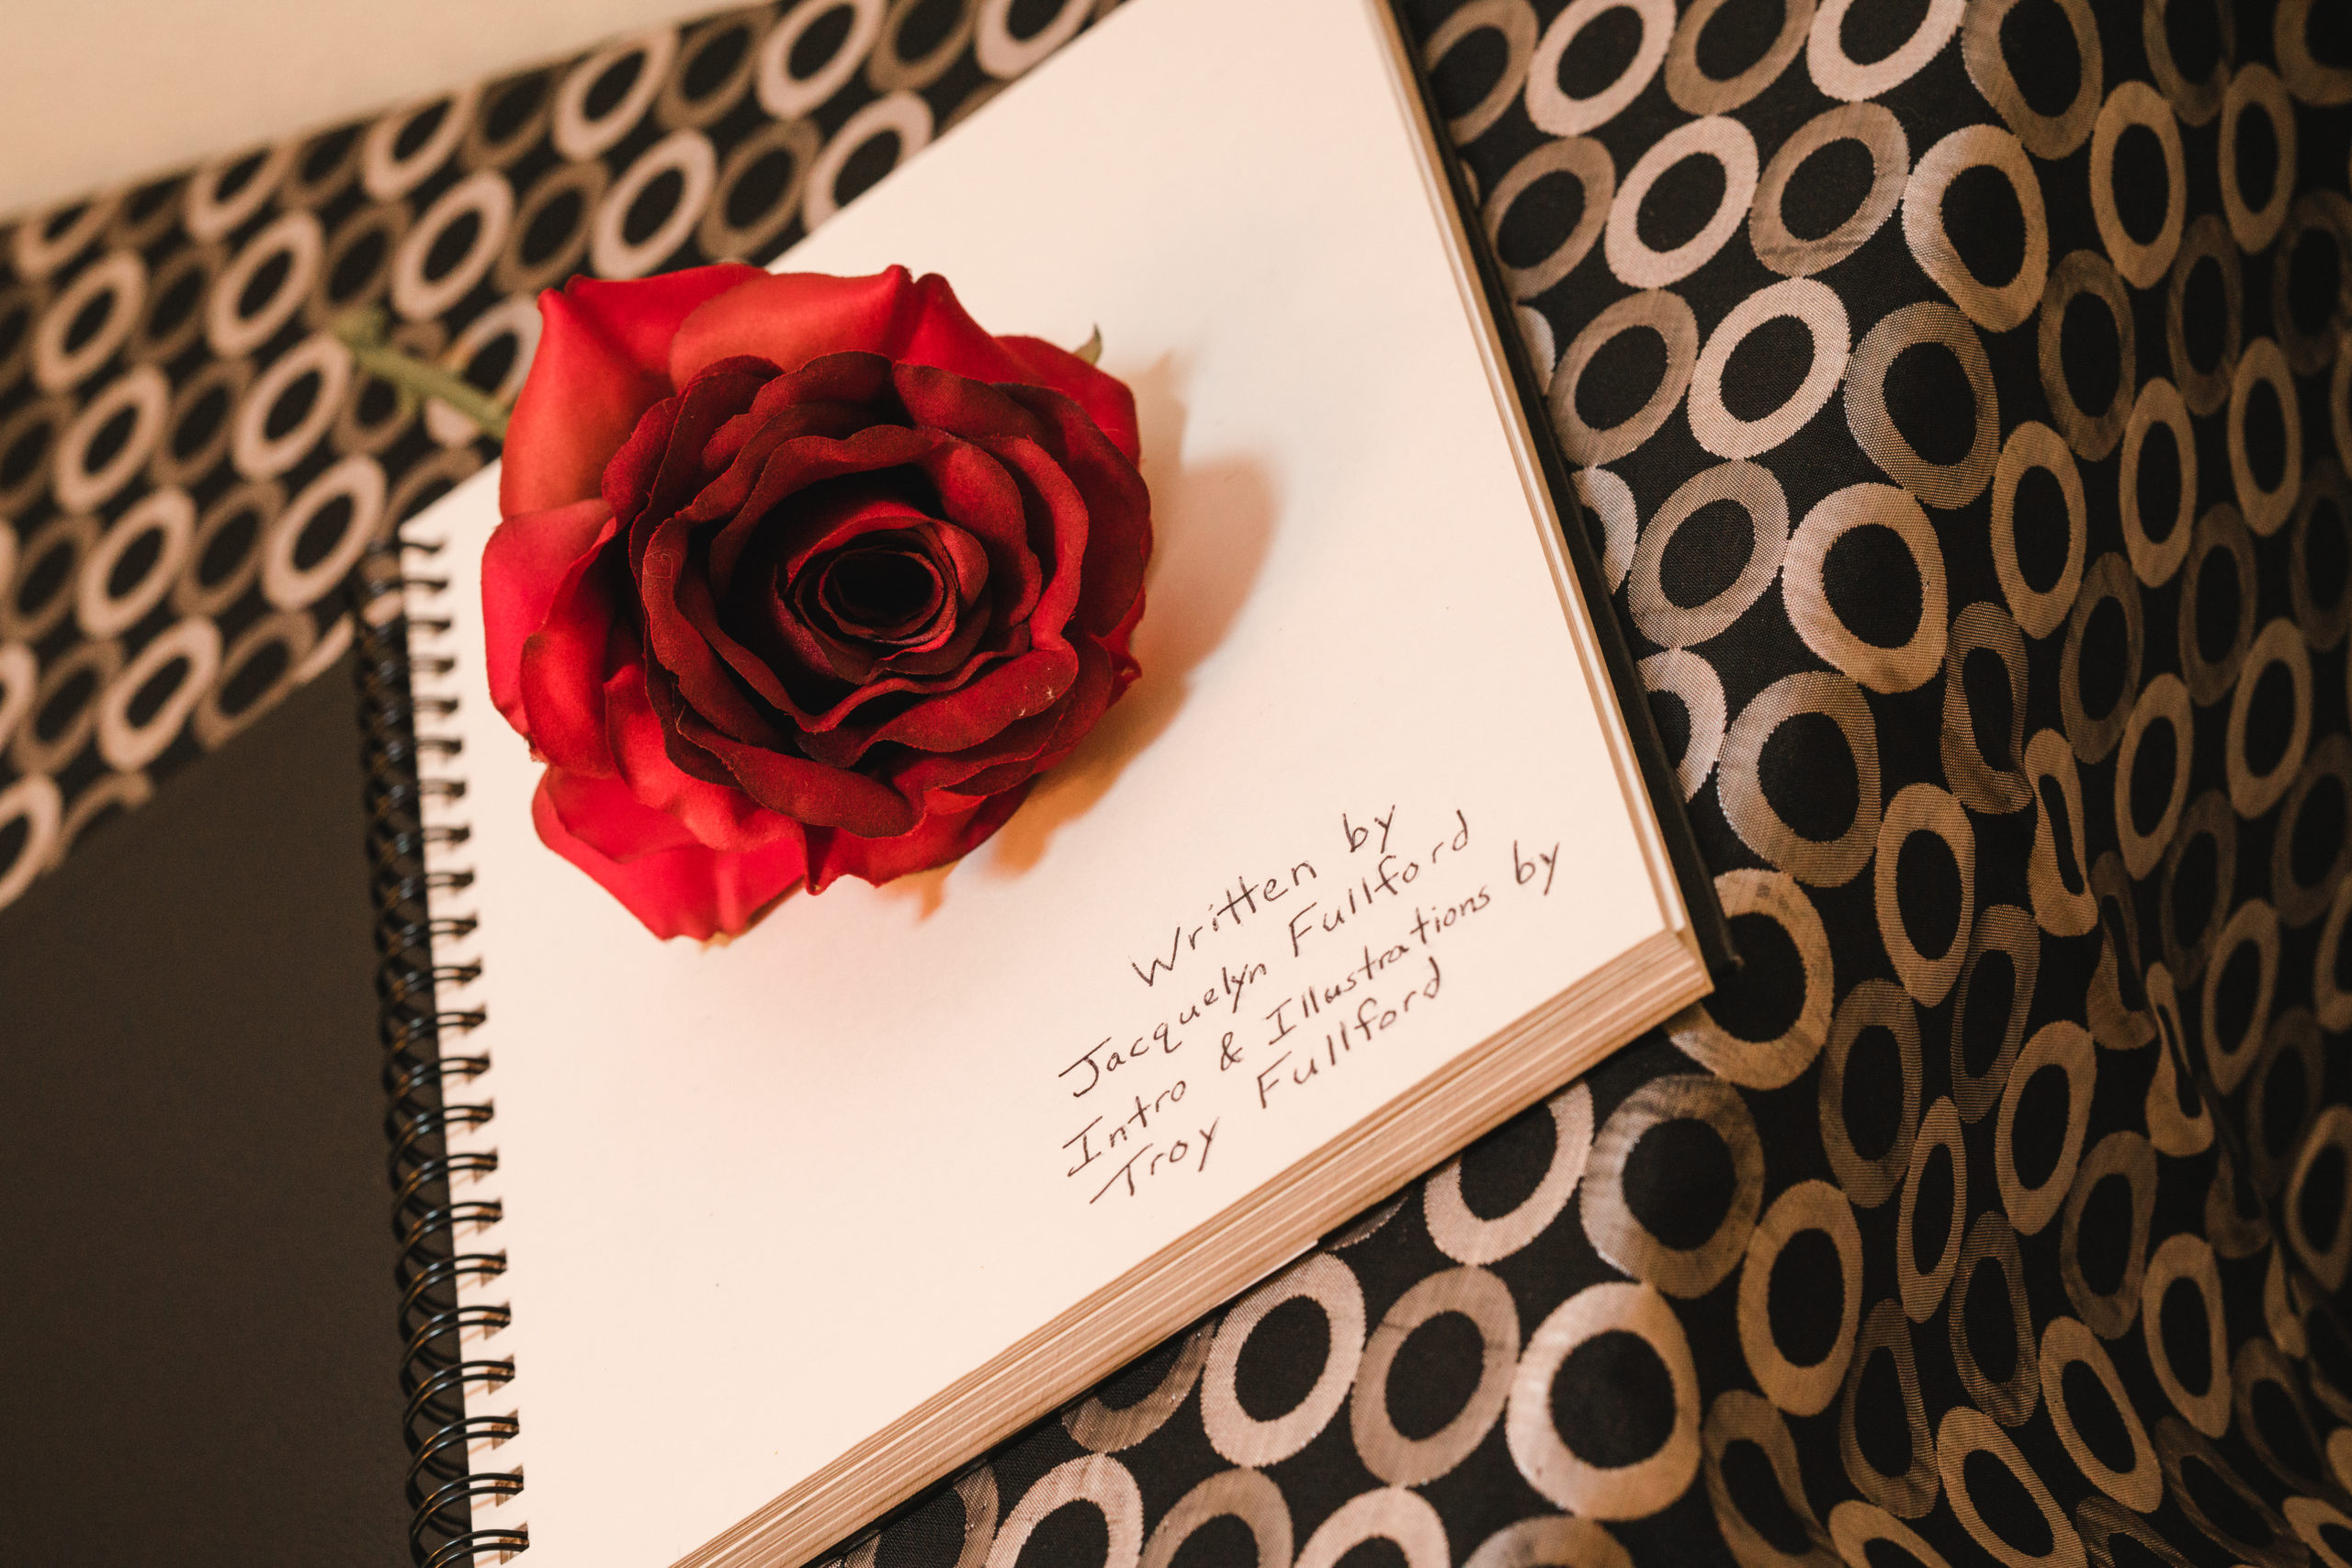 Written by
Jacquelyn Fullford
Intro & Illustrations by
Troy Fullford